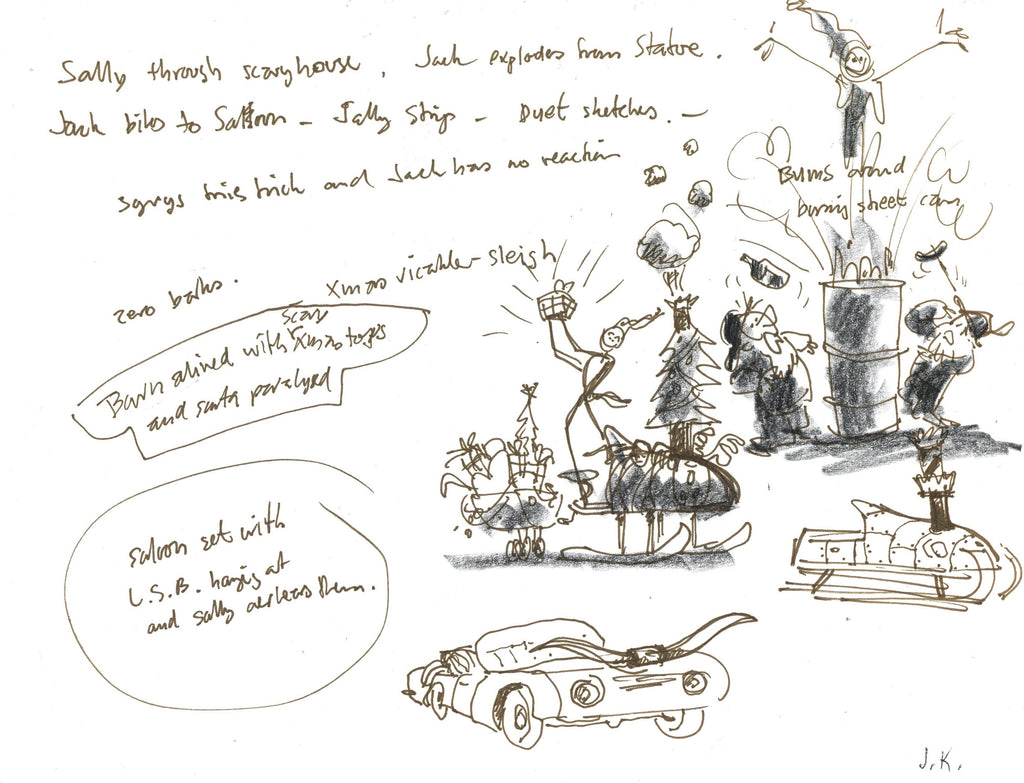 Sally through scary house. Jack explodes from Statue.
Jack bikes to Saloon - Sally Strip - Duet sketches. -
tries trick and Jack has no reaction
Bums around
burning street can
zero barks.
Xmas - sleigh
scary
Barn with Xmas
and santa paralysed
Saloon set with
L.S.B. hanging at
and sally
J.K.